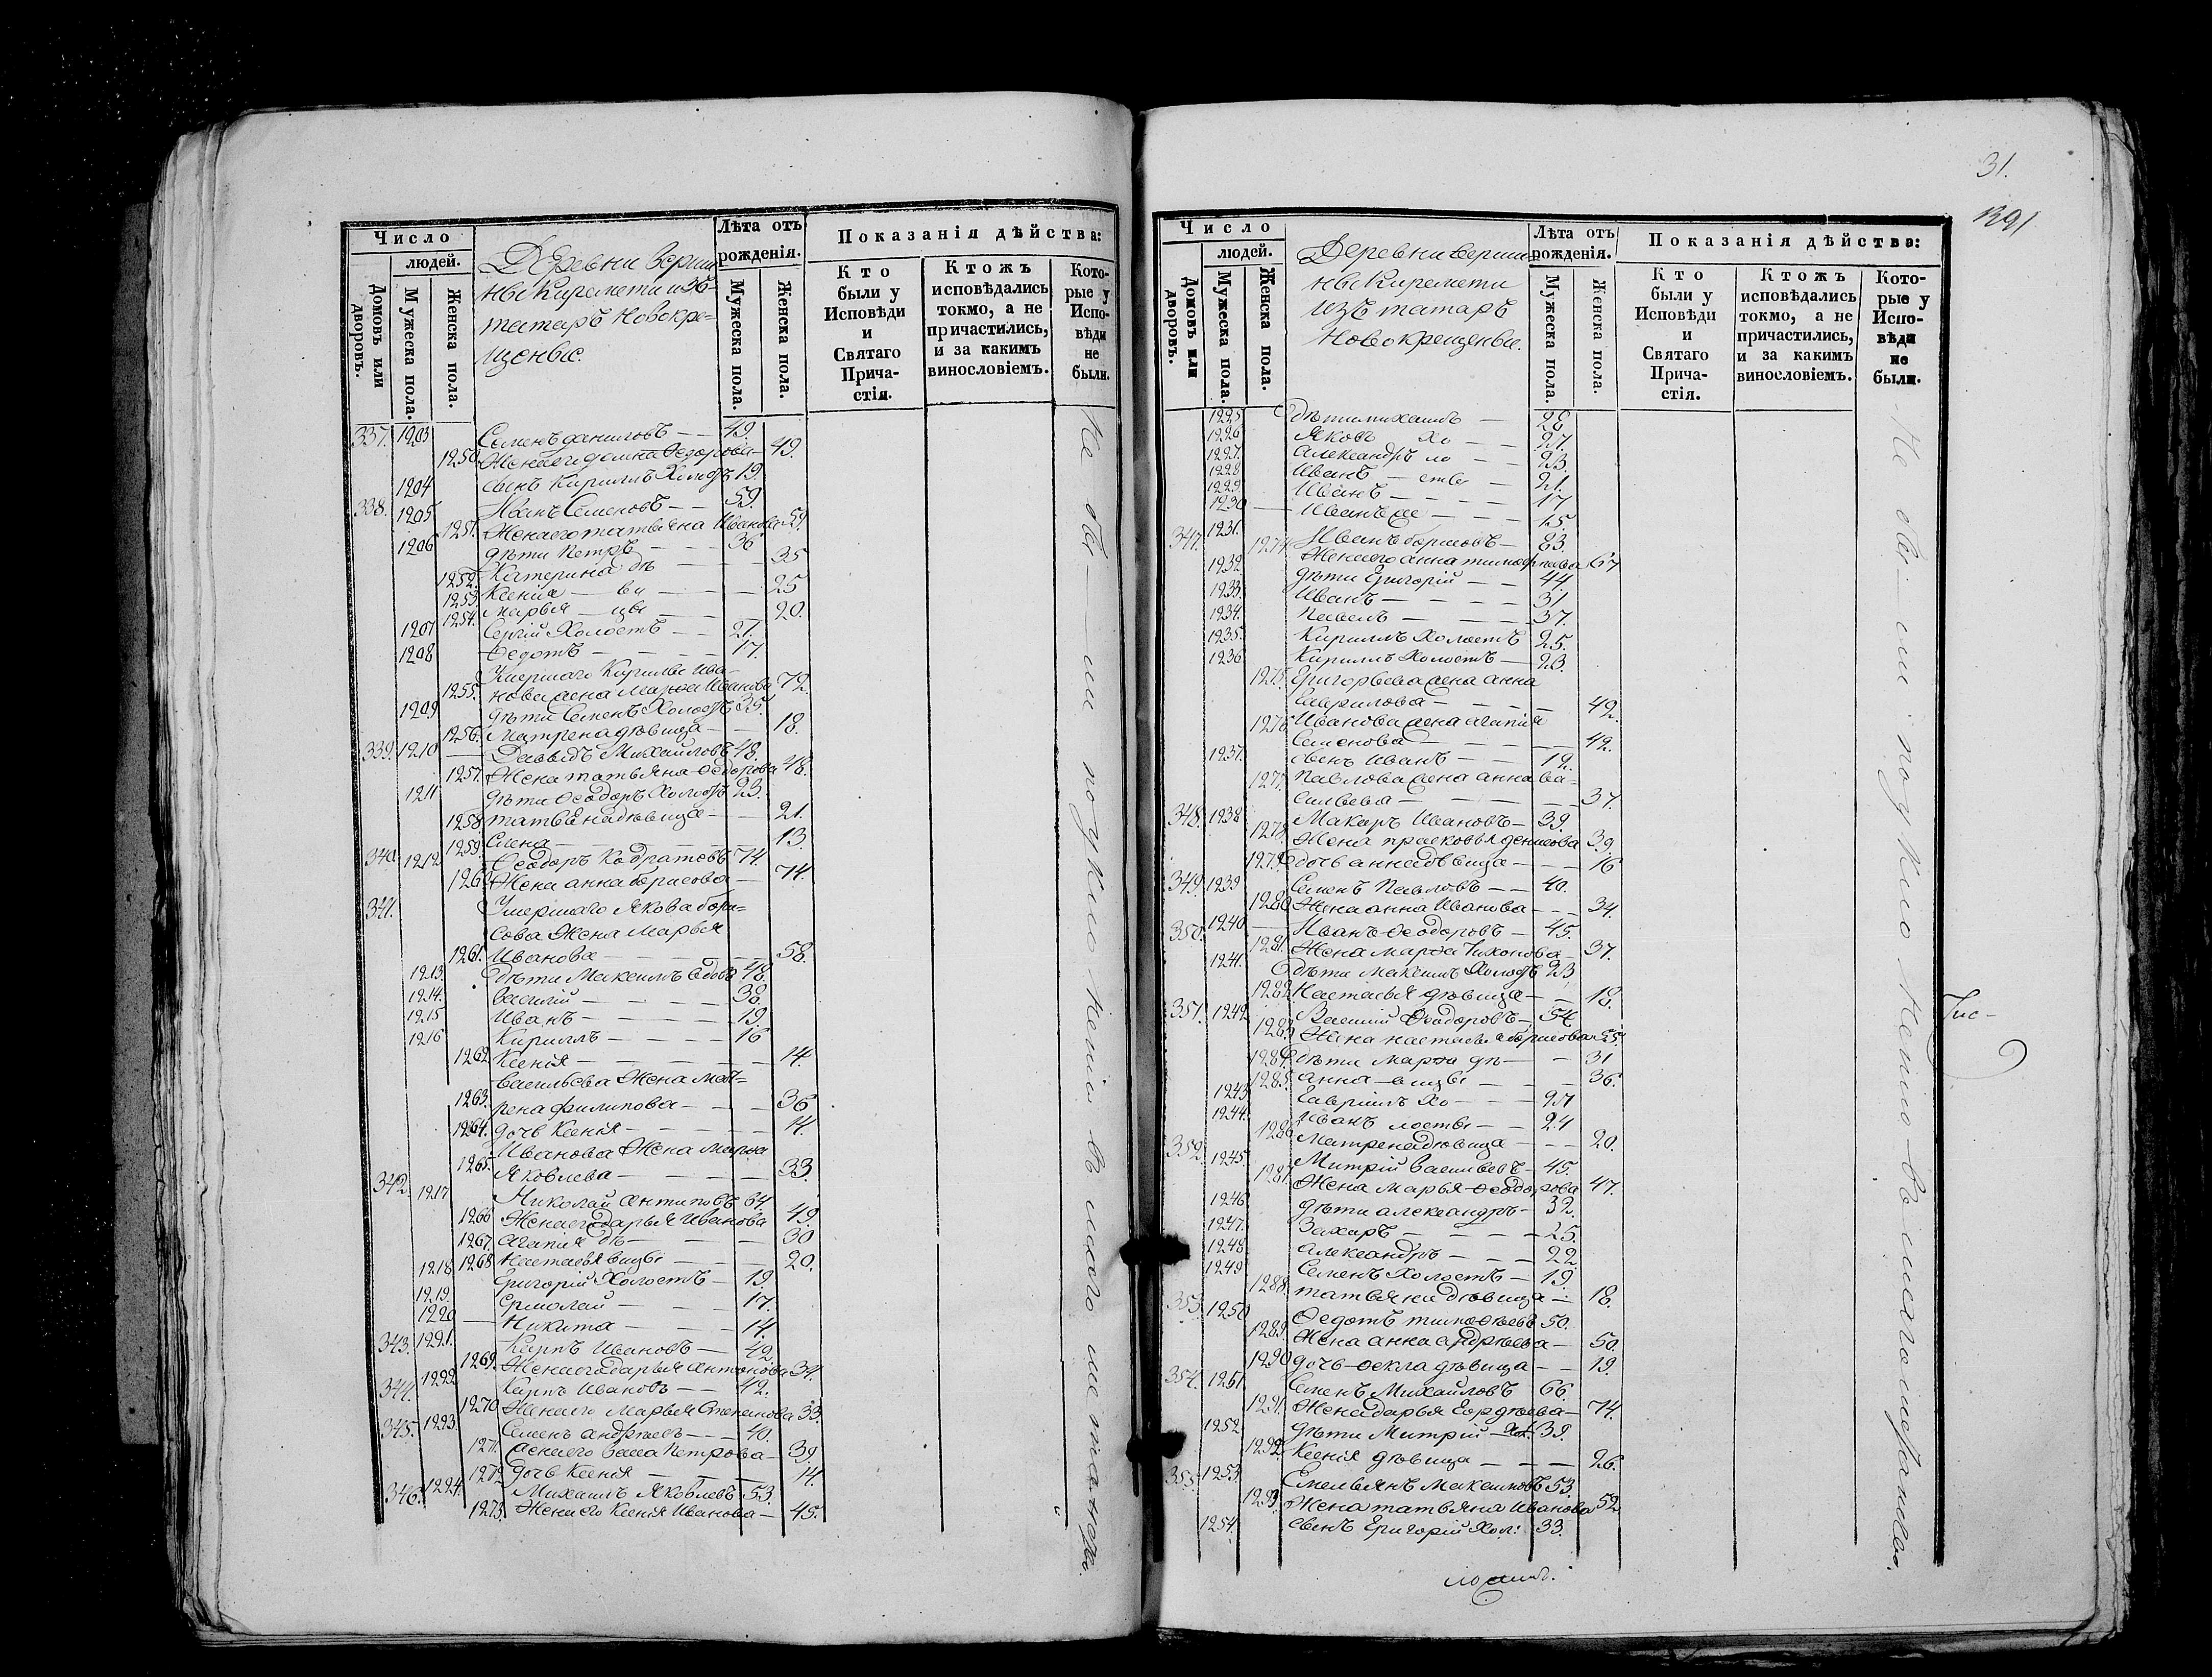 Число
людей.
Домовъ или дворовъ.
Мужеска пола.
Женска пола.
Деревни Верши
ны Киремети изъ
татаръ новокре=
щеные.
Лѣта отъ рожденія.
Мужеска пола.
Женска пола.
Показанія дѣйства:
Кто были у Исповѣди и Святаго Прича- стія.
Ктожъ исповѣдались токмо, а не причастились, и за какимъ винословіемъ.
Кото- рые у Испо- вѣди не были.
337. 1203 Семенъ Даниловъ — 49.
1250 Жена его Домна Ѳедорова — 49.
1204 сынъ Кириллъ Холостъ 19.
338. 1205 Иванъ Семеновъ — 59.
1251. Жена его Татьяна Иванова 59.
1206 дѣти Петръ — 36
1252. Катерина дѣ — 35
1253. Ксенія — ви — 25
1254. Марья — цы — 20.
1207 Сергій Холостъ — 21.
1208 Ѳедотъ — 17.
Умершаго Кирилы Ива-
1255. нова жена Марѳа Иванова 72.
1209 дѣти Семенъ Холостъ 35.
1256. Матрена дѣвица — 18.
339. 1210 — Давыдъ Михайловъ 48.
1257. Жена Татьяна Ѳедорова 48.
1211 дѣти Ѳеодоръ Холостъ 23.
1258 Татьяна дѣвица — 21.
1259. Елена — 13.
340 1212 Ѳеодоръ Кодратовъ 74.
1260 Жена Анна Борисова — 74.
341. Умершаго Якова Бори=
сова Жена Марья
1261. Иванова — 58.
1213. дѣти Максимъ вдовъ 48.
1214. Василій — 38.
1215 Иванъ — 19.
1216 Кириллъ — 16
1262 Ксенія — 14.
Васильева Жена Мат=
1263. рена Филипова — 36
1264. дочь Ксенія — 14.
Иванова Жена Марѳа
1265. Яковлева — 33.
342. 1217 Николай Антиповъ 64.
1266 Жена его Дарья Иванова 49.
1267. Агапія дѣ — 30
1268 Настасья вицы — 20.
1218 Григорій Холостъ — 19.
1219. Ермолай — 17.
1220 — Никита — 14.
343. 1221. Карпъ Ивановъ — 42.
1269. Жена его Дарья Антонова 34.
344. 1222 Карпъ Ивановъ — 42.
1270 Жена его Марья Степанова 33.
345. 1223. Семенъ Андреевъ — 40.
1271. жена его Васса Петрова — 39.
1272 дочь Ксенія — 14.
346. 1224. Михаилъ Яковлевъ 53.
1273. Жена его Ксенія Иванова — 45.
Не бы — ли по укло- ненію въ магометанство.
31.
1391
Число
людей.
Домовъ или дворовъ.
Мужеска пола.
Женска пола.
Деревни Верши
ны Киремети
изъ татаръ
новокрещеные.
Лѣта отъ рожденія.
Мужеска пола.
Женска пола.
Показанія дѣйства:
Кто были у Исповѣди и Святаго Прича- стія.
Ктожъ исповѣдались токмо, а не причастились, и за какимъ винословіемъ.
Кото- рые у Испо- вѣди не были.
1225 дѣти Михаилъ — 28
1226 Яковъ Хо — 27.
1227. Александръ ло — 23.
1228 Иванъ — сты — 21.
1229 Иванъ — 17
1230 — Иванъ же — 15.
347. 1231. Иванъ Борисовъ — 83.
1274 Жена его Анна Тимоѳеева 67
1232 дѣти Григорій — 44.
1233. Иванъ — 31
1234. Павелъ — 37.
1235. Кириллъ Холостъ 25.
1236 Кириллъ Холостъ — 23
1275 Григорьева жена Анна
Гаврилова — 42.
1276 Иванова жена Агапія
Семенова — 42.
1237. сынъ Иванъ — 12.
1277. Павлова жена Анна Ва-
сильева — 37.
348. 1238 Макаръ Ивановъ — 39.
1278. Жена Прасковья Денисова 39.
1279. дочь Анна дѣвица — 16
349. 1239 Семенъ Павловъ — 40.
1280 Жена Анна Иванова — 34.
350. 1240 — Иванъ Ѳеодоровъ — 45.
1281. Жена Марѳа Тихонова — 37.
1241. дѣти Максимъ Холостъ 23
1282 Настасья дѣвица — 18.
351. 1242 Василій Ѳеодоровъ — 54.
1283. Жена Настасья Борисова 55.
1284. дѣти Марѳа дѣ — 31
1285. Анна — вицы — 36.
1243 Гавріилъ Хо — 27
1244. Иванъ лосты — 24
1286 Матрена дѣвица — 20.
352. 1245. Митрій Васильевъ — 45.
1287. Жена Марья Ѳеодорова 47.
1246 дѣти Александръ — 32.
1247. Захаръ — 25.
1248 Александръ — 22.
1249 Семенъ Холостъ — 19.
1288. Татьяна дѣвица — 18.
353. 1250 Ѳедотъ Тимоѳеевъ 50.
1289. Жена Анна Андреева — 50.
1290 дочь Ѳекла дѣвица — 19.
354. 1251 Семенъ Михайловъ 66.
1291. Жена Дарья Гордѣева — 74.
1252 дѣти Митрій — Хол. 39.
1292 Ксенія дѣвица — 26.
355. 1253. Емельянъ Максимовъ 53.
1293. Жена Татьяна Иванова 52
1254. сынъ Григорій Хол: 33.
Не бы — ли по укло- ненію — въ магометанство.